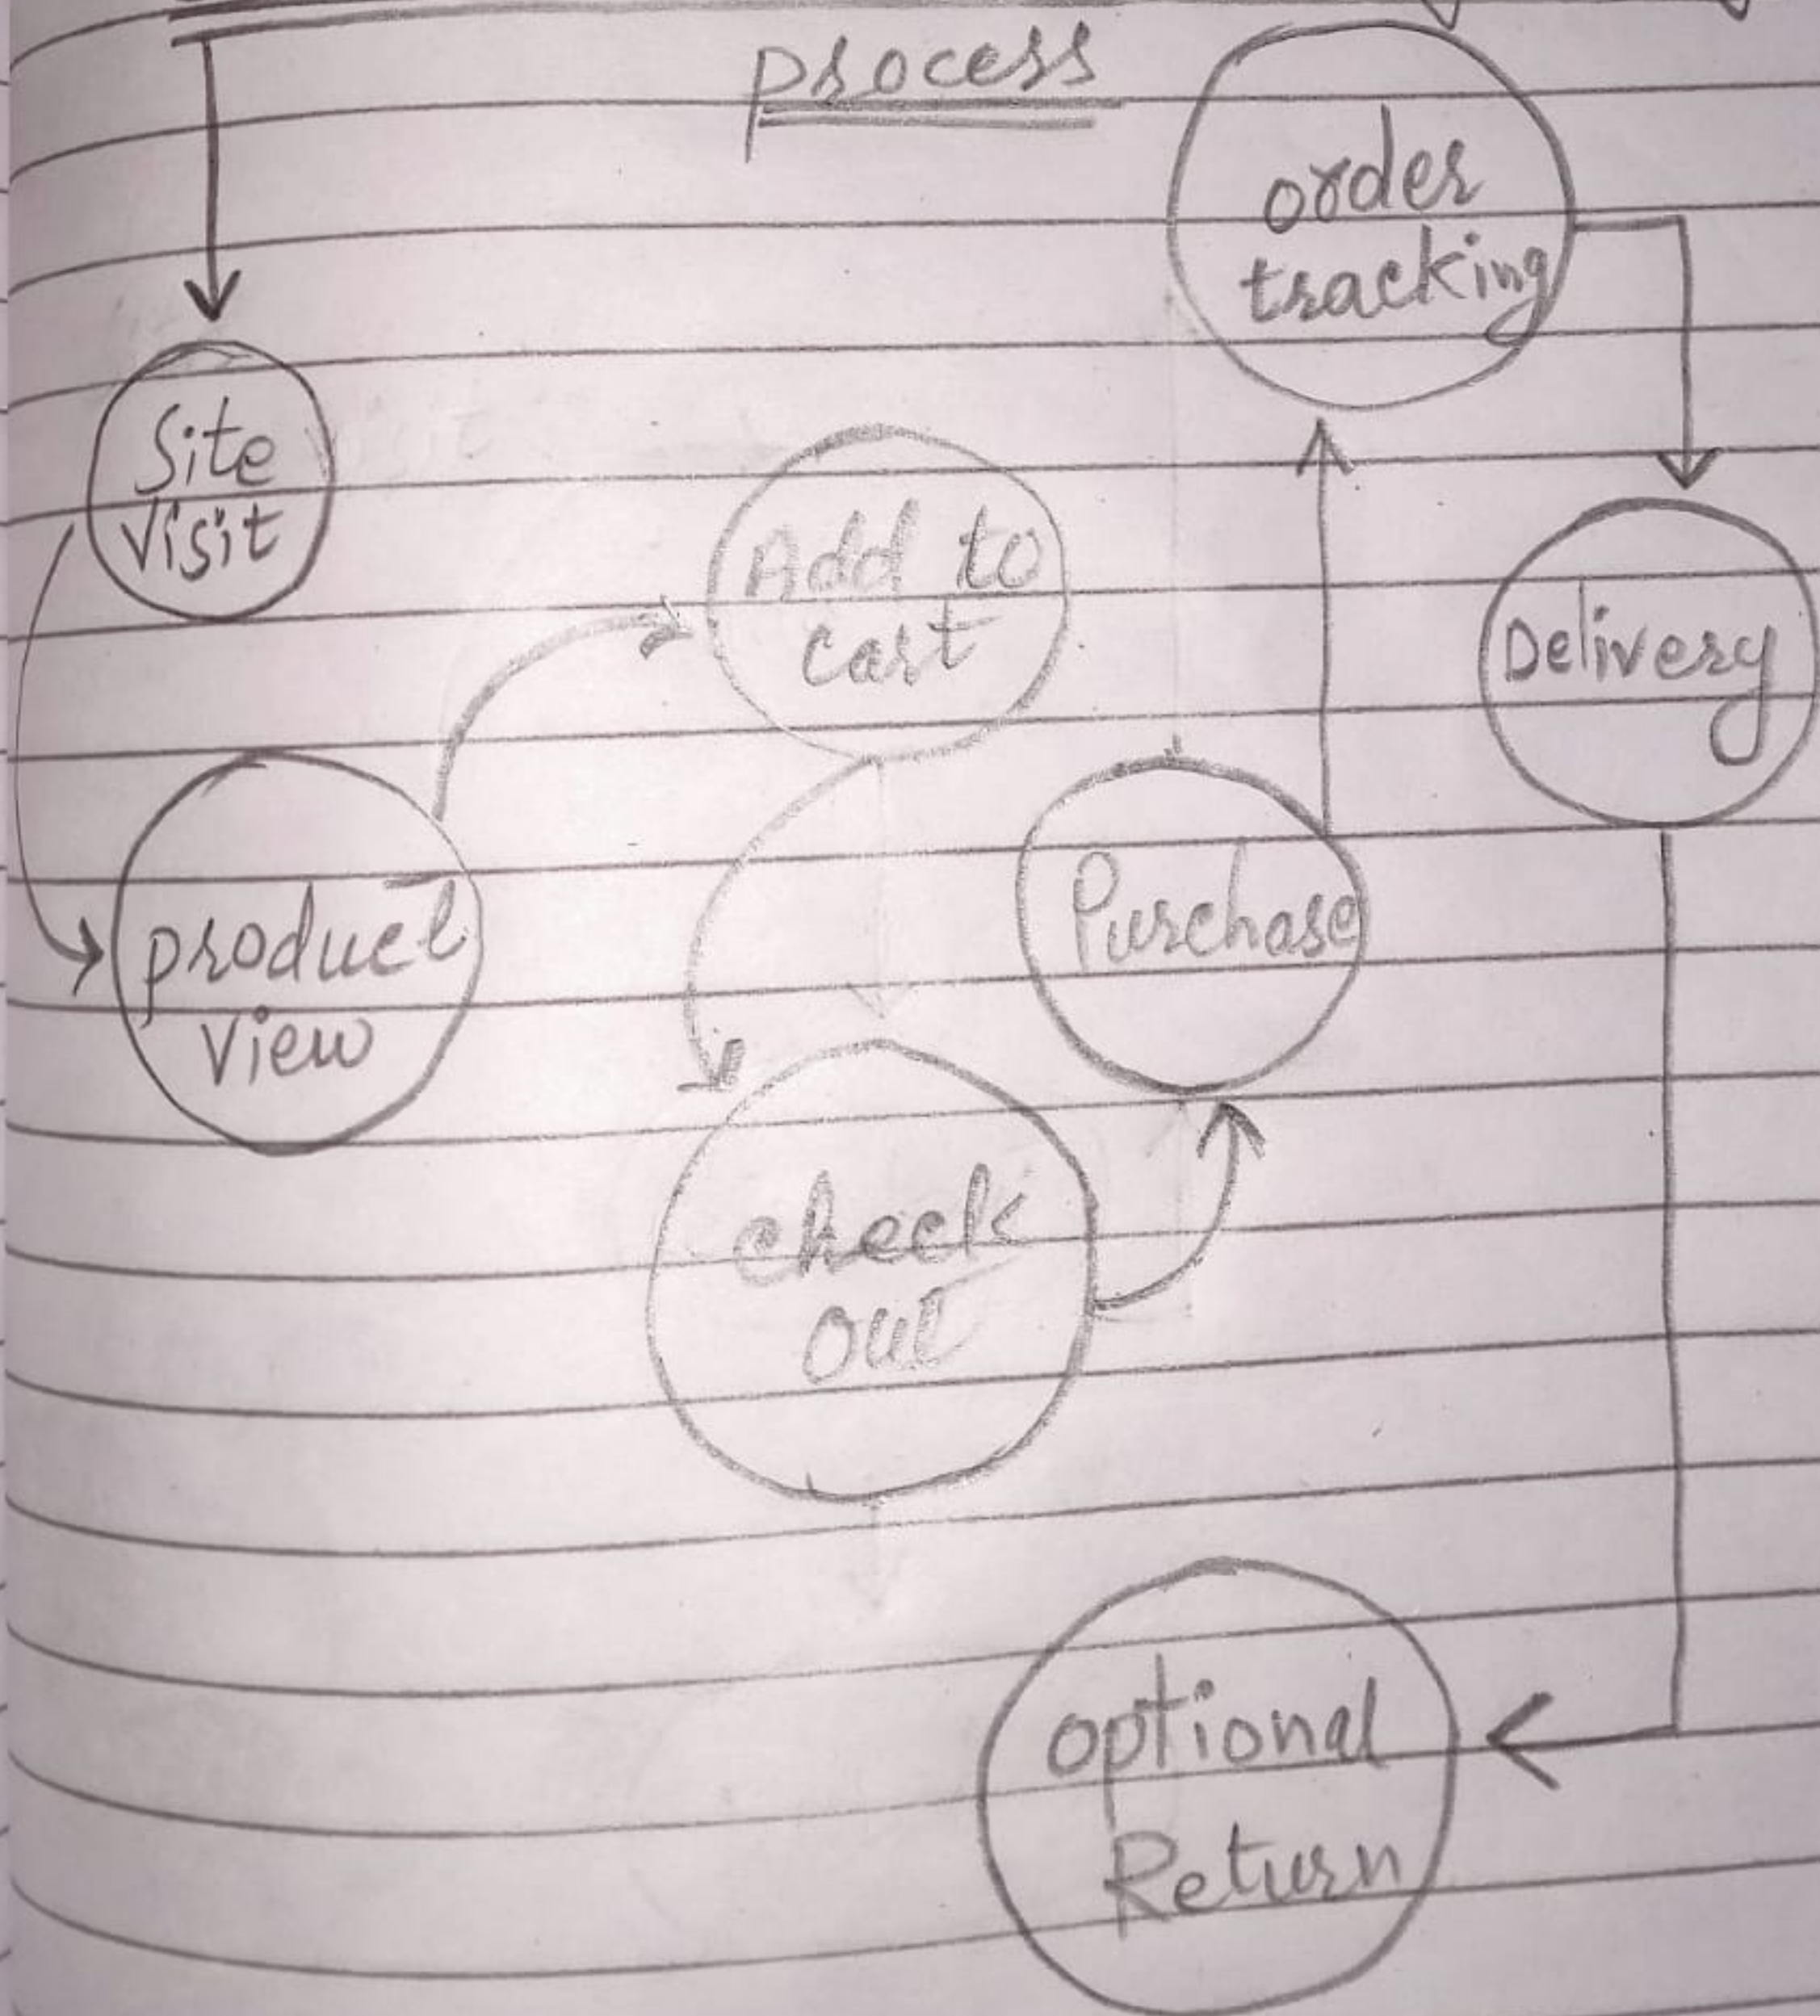 process
Site
Visit
product
View
Add to
cart
check
out
Purchase
order
tracking
Delivery
optional
Return